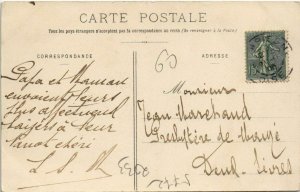 CARTE POSTALE
Tous les pays étrangers n'acceptent pas la correspondance au recto (Se renseigner à la Poste)
CORRESPONDANCE
ADRESSE
60
Papa et Maman
envoient leurs
plus affectueux
baisers à leur
chéri
Monsieur
Jean Marchand
Presbytère de
Deux-Sèvres